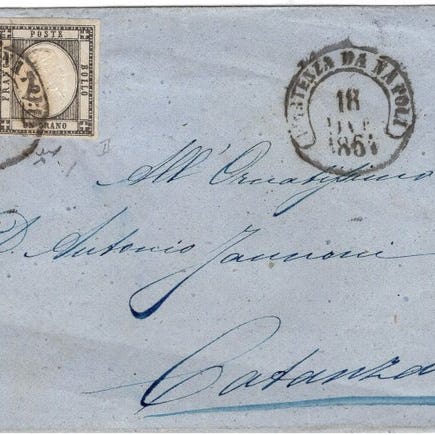 POSTE
FRANCO
BOLLO
UN GRANO
PARTENZA DA NAPOLI
18
186
All' Ornatissimo
D. Antonio Jannoni
Catanza